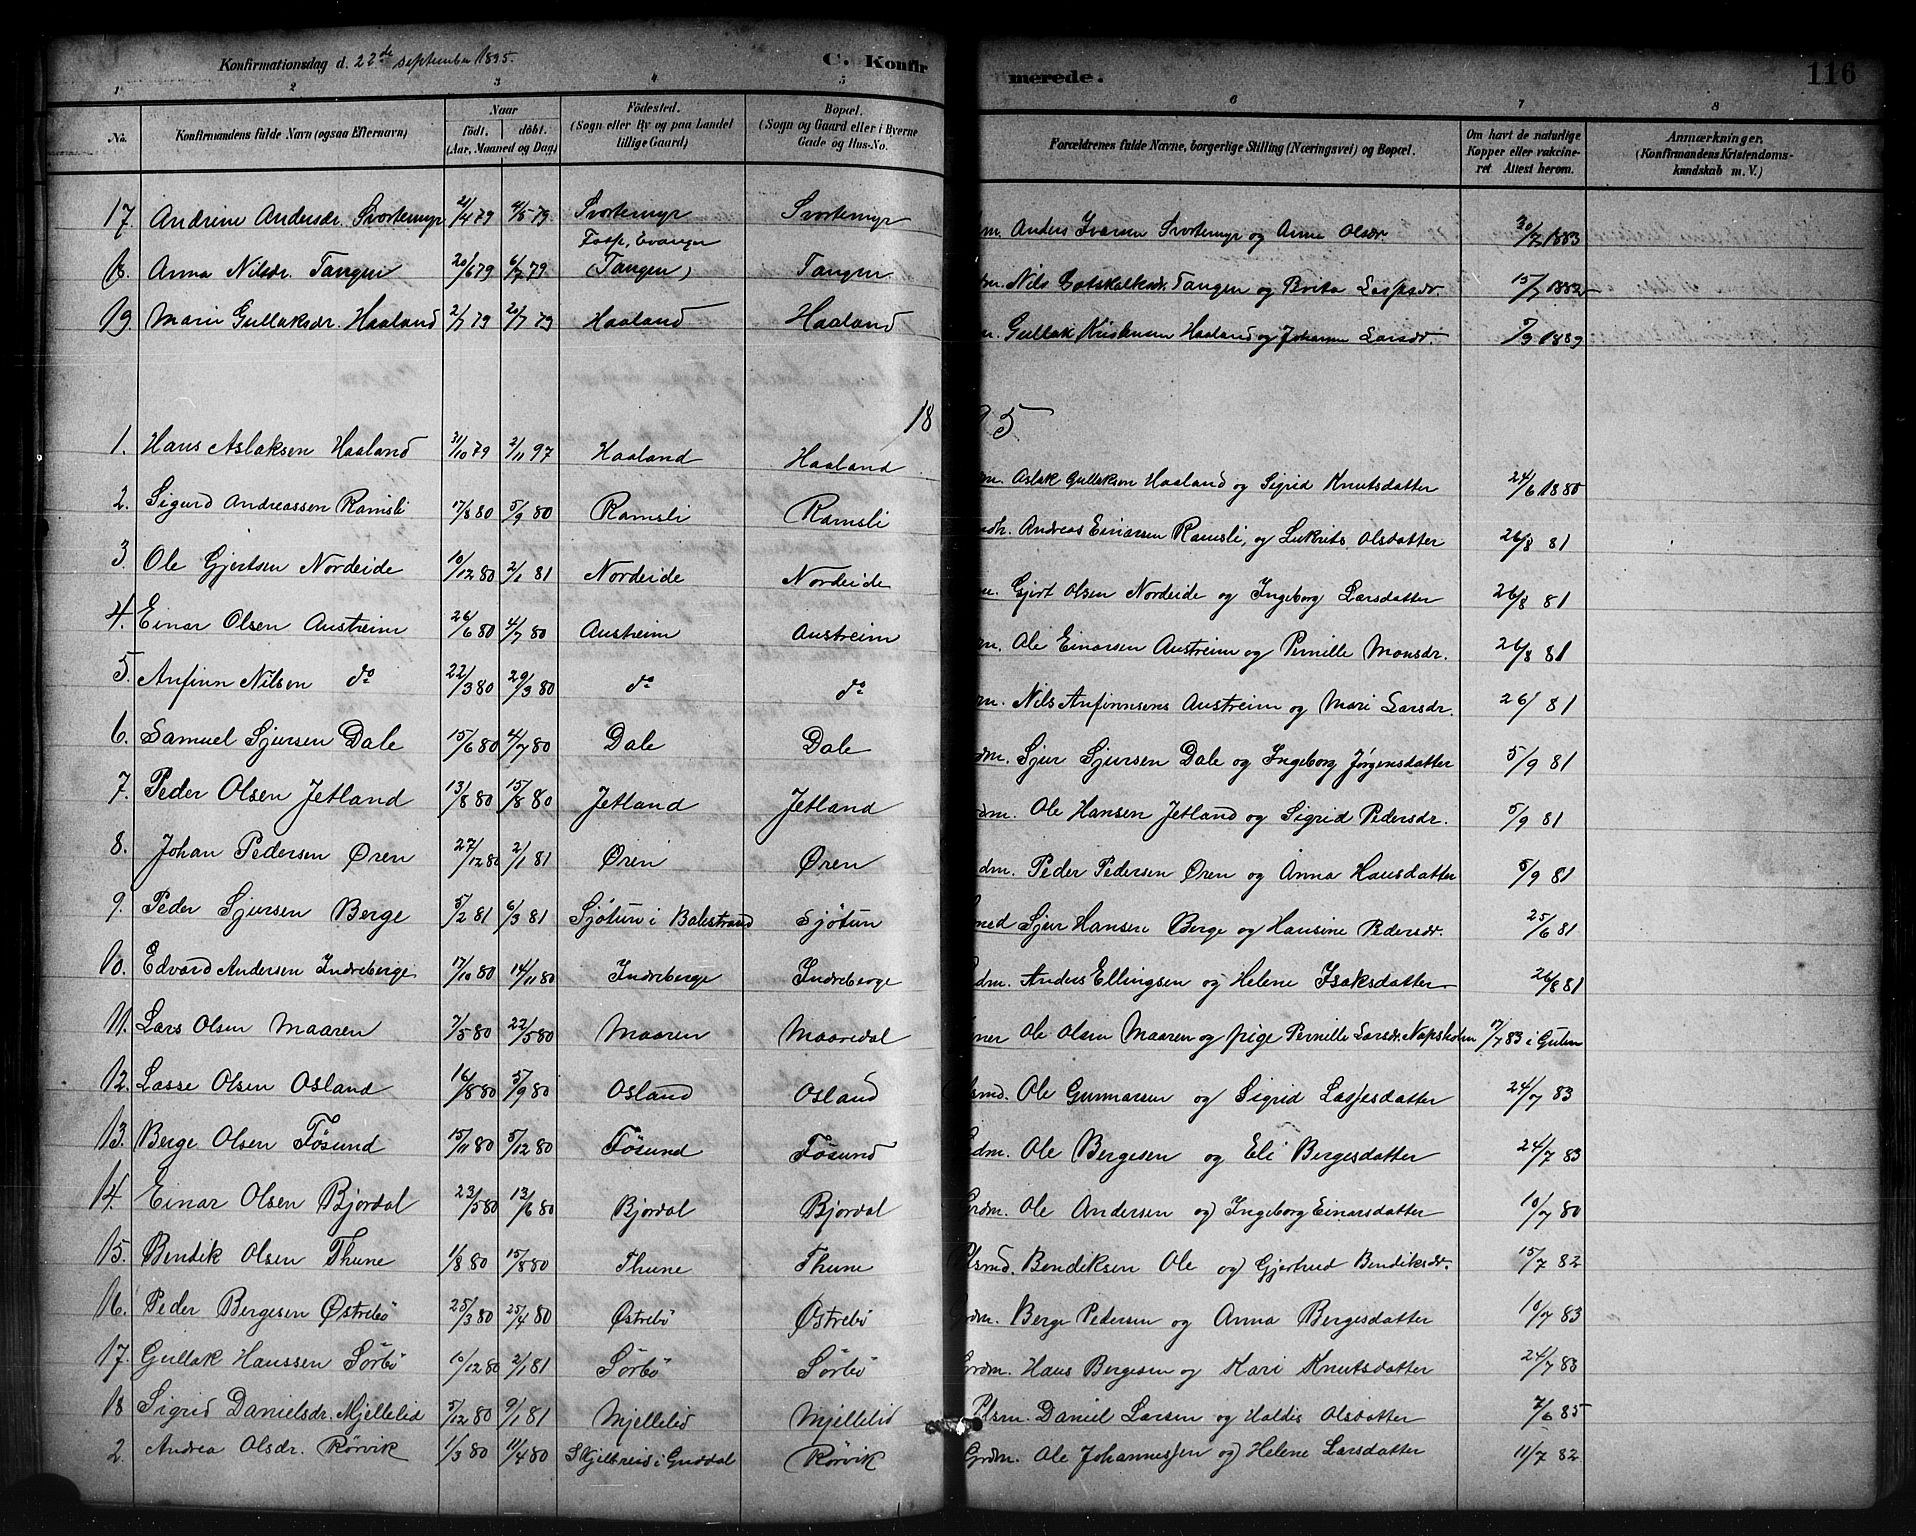 Konfirmationsdag d. 22de September 1895. C. Konfirmerede. 116
1 2 3 4 5 6 7 8
No. Konfirmandens fulde Navn (ogsaa Efternavn) Naar födt. döbt. (Aar, Maaned og Dag) Födested. (Sogn eller By og paa Landet tillige Gaard) Bopæl. (Sogn og Gaard eller i Byerne Gade og Hus-No. Forældrenes fulde Navne, borgerlige Stilling (Næringsvei) og Bopæl. Om havt de naturlige Kopper eller vakcineret Attest herom. Anmærkninger. (Konfirmandens Kristendomskundskab m. V.)
17. Andrine Andersdr. Svortemyr 21/4 79 4/5 79 Svortemyr Svortemyr m. Anders Ivarsen Svortemyr og Anne Olsdr. 30/7 1883
18. Anna Nilsdr. Tangen 20/6 79 6/7 79 Fosse, Evanger (Tangen) Tangen m. Nils Gotskalksn. Tangen og Brita Lassesdr. 15/7 1882
19. Marie Gullaksdr. Haaland 2/7 79 20/7 79 Haaland Haaland m. Gullak Kristensen Haaland og Johanne Larsdr. 5/9 1889
1895
1. Hans Aslaksen Haaland 31/10 79 2/11 97 Haaland Haaland m. Aslak Gullaksen Haaland og Sigrid Knutsdatter 24/6 1880
2. Sigurd Andreassen Ramsli 17/8 80 5/9 80 Ramsli Ramsli Andreas Einarsen Ramsli, og Lukrits Olsdatter 26/8 81
3. Ole Gjertsen Nordeide 10/12 80 2/1 81 Nordeide Nordeide m. Gjert Olsen Nordeide og Ingeborg Larsdatter 26/8 81
4. Einar Olsen Austreim 26/6 80 4/7 80 Austreim Austreim m. Ole Einarsen Austreim og Pernille Monsdr. 26/8 81
5. Anfinn Nilsen do 22/3 80 29/3 80 do do m. Nils Anfinnsens Austreim og Mari Larsdr. 26/ 81
6. Samuel Sjursen Dale 15/6 80 4/7 80 Dale Dale dm. Sjur Sjursen Dale og Ingeborg Jørgensdatter 5/9 81
7. Peder Olsen Jetland 13/8 80 15/8 80 Jetland Jetland dm. Ole Hansen Jetland og Sigrid Pedersdr. 5/9 81
8. Johan Pedersen Øren 27/12 80 2/1 81 Øren Øren dm. Peder Pedersen Øren og Anna Hansdatter 5/9 81
9. Peder Sjursen Berge 5/2 81 6/3 81 Sjøtun i Balestrand Sjøtun med Sjur Hansen Berge og Hansine Pedersdr. 25/6 81
10. Edvard Andersen Indreberge 17/10 80 14/11 80 Indreberge Indreberge dm. Anders Ellingsen og Helene Isaksdatter 26/8 81
11. Lars Olsen Maaren 7/5 80 22/5 80 Maaren Maaredal Ole Olsen Maaren og pige Pernille Larsdr. Napsholm 17/7 83 i Gulen
12. Lasse Olsen Osland 16/8 80 5/9 80 Osland Osland lsmd. Ole Gunnarsen og Sigrid Lassesdatter 24/7 83
13. Berge Olsen Føsund 15/11 80 5/12 80 Føsund Føsund dm. Ole Bergesen og Eli Bergesdatter 24/7 83
14. Einar Olsen Bjordal 23/5 80 13/6 80 Bjordal Bjordal Grdm. Ole Andersen og Ingeborg Einarsdatter 10/7 80
15. Bendik Olsen Thune 1/8 80 15/8 80 Thune Thune Plsmd. Bendiksen Ole og Gjertrud Bendiksdr. 15/7 82
16. Peder Bergesen Østrebö 25/3 80 25/4 80 Østrebö Østrebö Grdm. Berge Pedersen og Anna Bergesdatter 10/7 83
17. Gullak Hanssen Sörbö 10/12 80 2/1 81 Sörbö Sörbö Grdm. Hans Bergesen og Kari Knutsdatter 24/7 83
18 Sigrid Danielsdr. Mjellelid 5/12 80 9/1 81 Mjellelid Mjellelid Plsm. Daniel Larsen og Haldis Olsdatter 7/6 85
2. Andrea Olsdr. Rörvik 1/3 80 11/4 80 Skjelbreid i Guddal Rörvik Grdm. Ole Johannessen og Helene Larsdatter 11/7 82